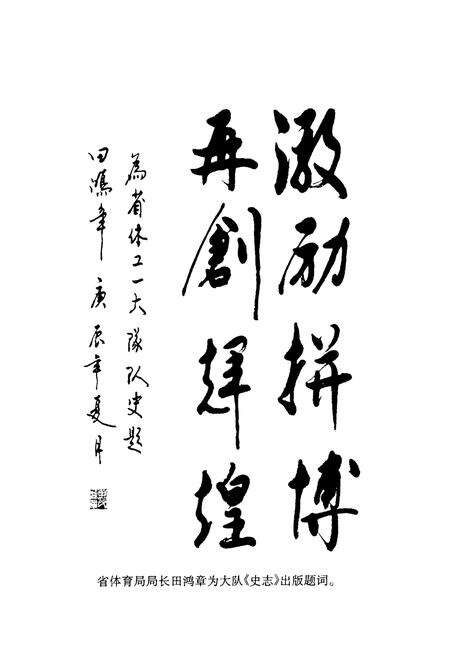 激励拼博
再創辉煌
為省体工一大隊队史题
田鸿章 庚辰年夏月
省体育局局长田鸿章为大队《史志》出版题词。